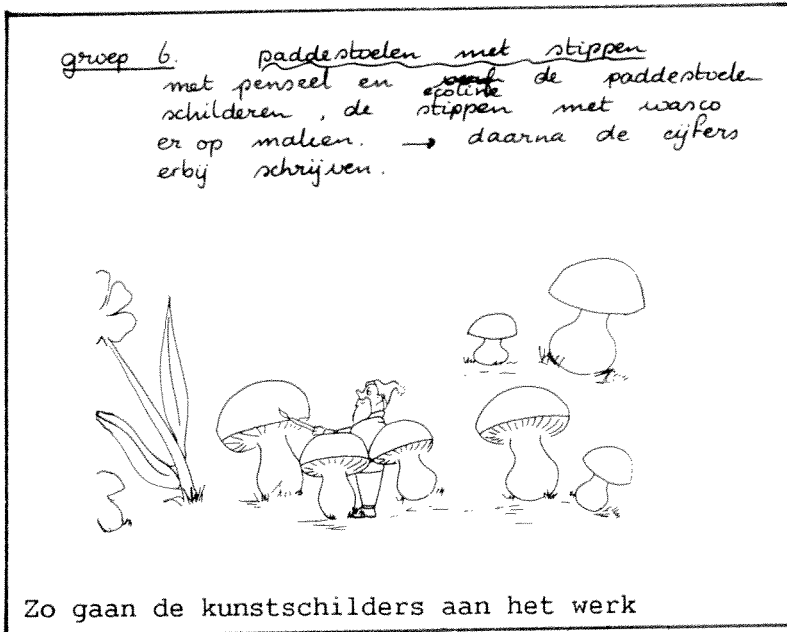 groep 6. paddestoelen met stippen
met penseel en ecoline de paddestoelen
schilderen, de stippen met wasco
er op maken. → daarna de cijfers
erbij schrijven.
Zo gaan de kunstschilders aan het werk